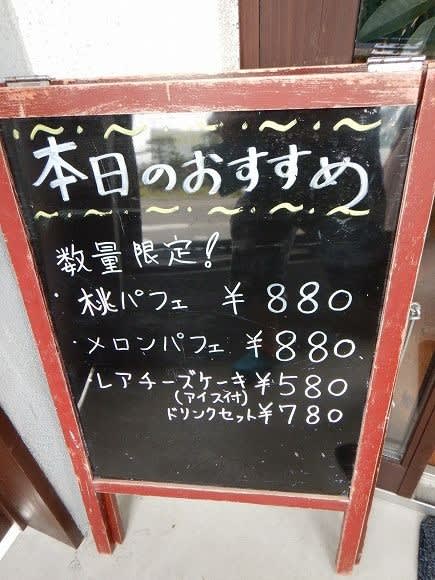 本日のおすすめ
数量限定!
・桃パフェ ¥880
・メロンパフェ ¥880
・レアチーズケーキ ¥580
(アイス付)
ドリンクセット ¥780